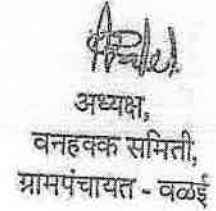 अध्यक्ष,
वनहक्क समिती,
ग्रामपंचायत - वळई